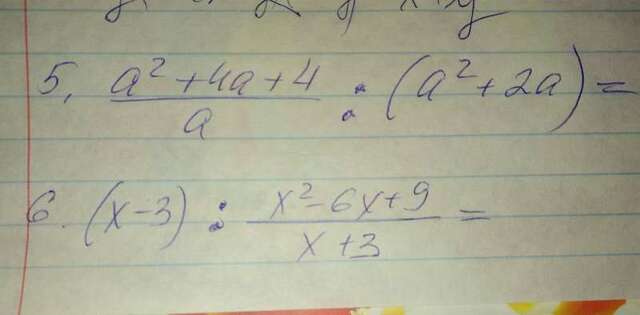 5. (a²+4a+4)/a : (a²+2a) =
6. (x-3) : (x²-6x+9)/(x+3) =